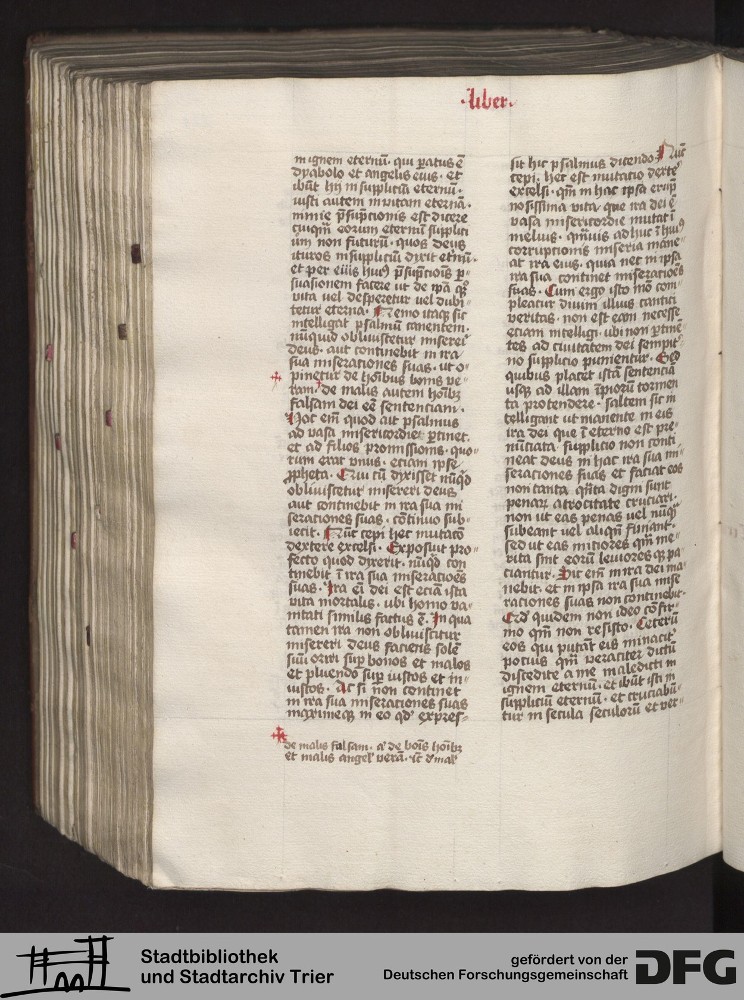 ·liber·
in ignem eternū· qui ꝑatus ē
dyabolo et angelis eius· et
ibūt hij in suppliciū eternū·
iusti autem in vitam eternā·
nimie p̄sūpcionis est dicere
cuiqm̄ eorum eternū supplici
um non futurū· quos deus
ituros in suppliciū dixit et'nū·
et per eius hui9 p̄sūpciōis ꝑ-
suasionem facere ut de ip̄a qȝ
vita uel desperetur uel dubi-
tetur eterna· Nemo itaqȝ sic
intelligat psalmū canentem·
nūquid obliuiscetur miserei
deus· aut continebit in ira
sua miseraciones suas· ut o-
pinetur de hoībus bonis ve-
ram· de malis autem hoībȝ
falsam dei eē sentenciam·
Hoc em̄ quod ait psalmus
ad vasa misericordie ꝑtinet·
et ad filios promissionis· quo-
rum erat vnus· eciam ipse
ꝓpheta· Qui cū dixisset nūqd
obliuiscetur misereri deus
aut continebit in ira sua mi
seraciones suas· cōtinuo sub-
iecit· Nūc cepi hec mutacō
dextere excelsi· Exposuit pro-
fecto quod dixerit· nūqd con
tinebit ī ira sua miseracioēs
suas· Ira em̄ dei est eciā ista
vita mortalis· vbi homo va-
nitati similis factus ē· In qua
tamen ira non obliuiscitur
misereri deus faciens solē
suū oriri sup bonos et malos
et pluendo sup iustos et in-
iustos· Ac si non continet
in ira sua miseraciones suas
maximeqȝ in eo qd' expres-
de malis falsam· a' de boīs hoībȝ
et malis angel' verā· ſc̄ d' mal'
sit hic psalmus dicendo· Nūc
cepi· hec est mutacio dexte'
excelsi· qm̄ in hac ipsa erūp
nosissima vita que ira dei ē
vasa misericordie mutat ī
melius· qmuis adhuc ī hui9
corrupcionis miseria mane-
at ira eius· quia nec in ipsa
ira sua continet miseracioēs
suas· Cum ergo isto mō com-
pleatur diuini illius cantici
veritas· non est eam necesse
eciam intelligi· vbi non ꝑtinē-
tes ad ciuitatem dei sempit'
no supplicio punientur· Sed
quibus placet istā sentenciā
usqȝ ad illam īpiorū tormen
ta protendere· saltem sic in
telligant ut manente in eis
ira dei que ī eterno est pre-
nūciata supplicio non conti
neat deus in hac ira sua mi-
seraciones suas et faciat eos
non tanta qn̄ta digni sunt
penaꝝ atrocitate cruciari·
non ut eas penas uel nūqȝ
subeant uel aliqn̄ finiant·
sed ut eas miciores qm̄ me-
rita sint eorū leuioresqȝ pa
ciantur· Sic em̄ in ira dei ma-
nebit· et in ipsa ira sua mise
raciones suas non continebit·
Qd' quidem non ideo cōfir-
mo qm̄ non resisto· Ceterū
eos qui putāt eis minacit'
pocius qm̄ veraciter dictū
discedite a me maledicti in
ignem eternū· et ibūt isti in
suppliciū eternū· et cruciabū-
tur in secula seculorū et ver-
Stadtbibliothek
und Stadtarchiv Trier
gefördert von der
Deutschen Forschungsgemeinschaft
DFG